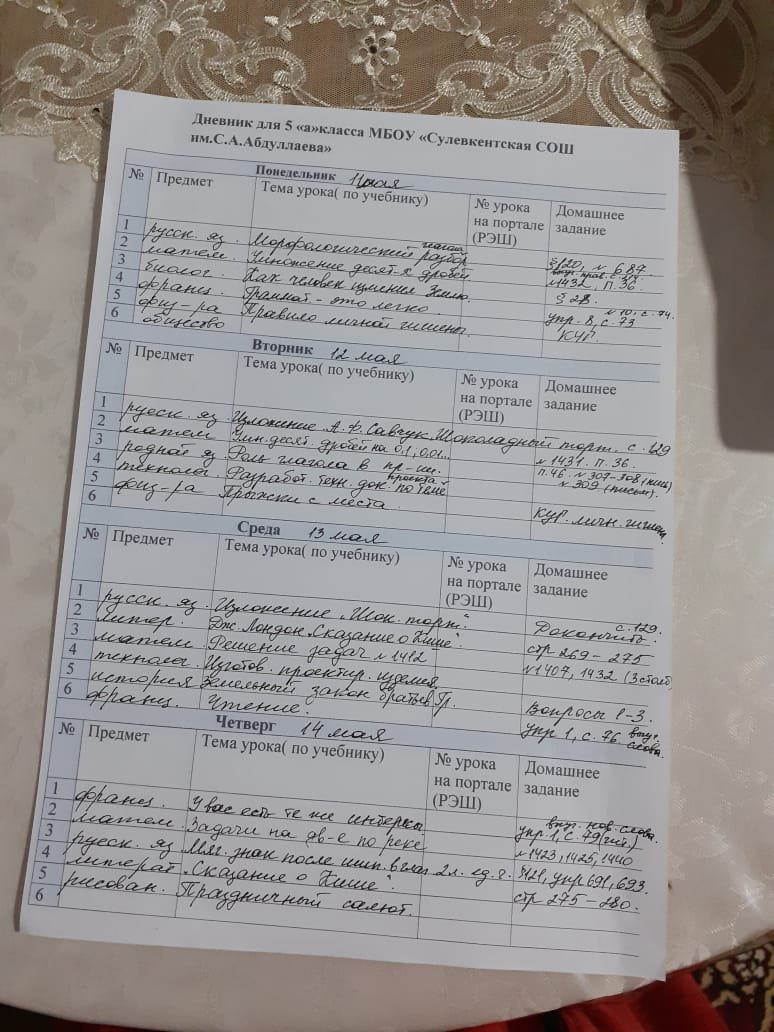 Дневник для 5 «а»класса МБОУ «Сулевкентская СОШ
им.С.А.Абдуллаева»
Понедельник 11 мая
№ Предмет Тема урока( по учебнику) № урока на портале (РЭШ) Домашнее задание
1 русск. яз. Морфологический разбор глагола §120, № 687.
2 матем. Умножение десят-х дробей выуч. прав. №1432, П.36.
3 биолог. Как человек изменил Землю. § 28.
4 франц. Граммат - это легко. упр. 8, с. 73 № 10, с. 74.
5 физ-ра Правила личной гигиены. КУР.
6 общество
Вторник 12 мая
№ Предмет Тема урока( по учебнику) № урока на портале (РЭШ) Домашнее задание
1 русск. яз. Изложение А.Ф.Савчук.Шоколадный торт. с. 129
2 матем Умн.десят. дробей на 0.1, 0,01... №1431. П. 36.
3 родной яз. Роль глагола в пр-ии. П.46. № 307-308 № 309 (письм).
4 технолог. Разработ. техн. док. по теме проекта
5 физ-ра Прыжки с места. КУР. личн. гигиен.
6
Среда 13 мая
№ Предмет Тема урока( по учебнику) № урока на портале (РЭШ) Домашнее задание
1 русск. яз. Изложение „Шок. торт." Докончить. с. 129.
2 литер. Дж. Лондон „Сказание о Кише". стр 269 - 275
3 матем Решение задач № 1412 №1407, 1432 (3 столб)
4 технолог. Изготов. проектир. изделия
5 история Земельный закон братьев Гр. Вопросы 1-3.
6 франц. Чтение. упр 1, с. 76. выуч. слова.
Четверг 14 мая
№ Предмет Тема урока( по учебнику) № урока на портале (РЭШ) Домашнее задание
1 франц. У вас есть те же интересы выуч. нов. слова. упр. 1, с. 79 (чит.)
2 матем. Задачи на дв-е по реке №1423, 1425, 1440
3 русск. яз Мяг. знак после шип. в глаг. 2 л. ед. ч. §121, упр 691, 693.
4 литерат. „Сказание о Кише". стр 275 - 280.
5 рисован. Праздничный салют.
6